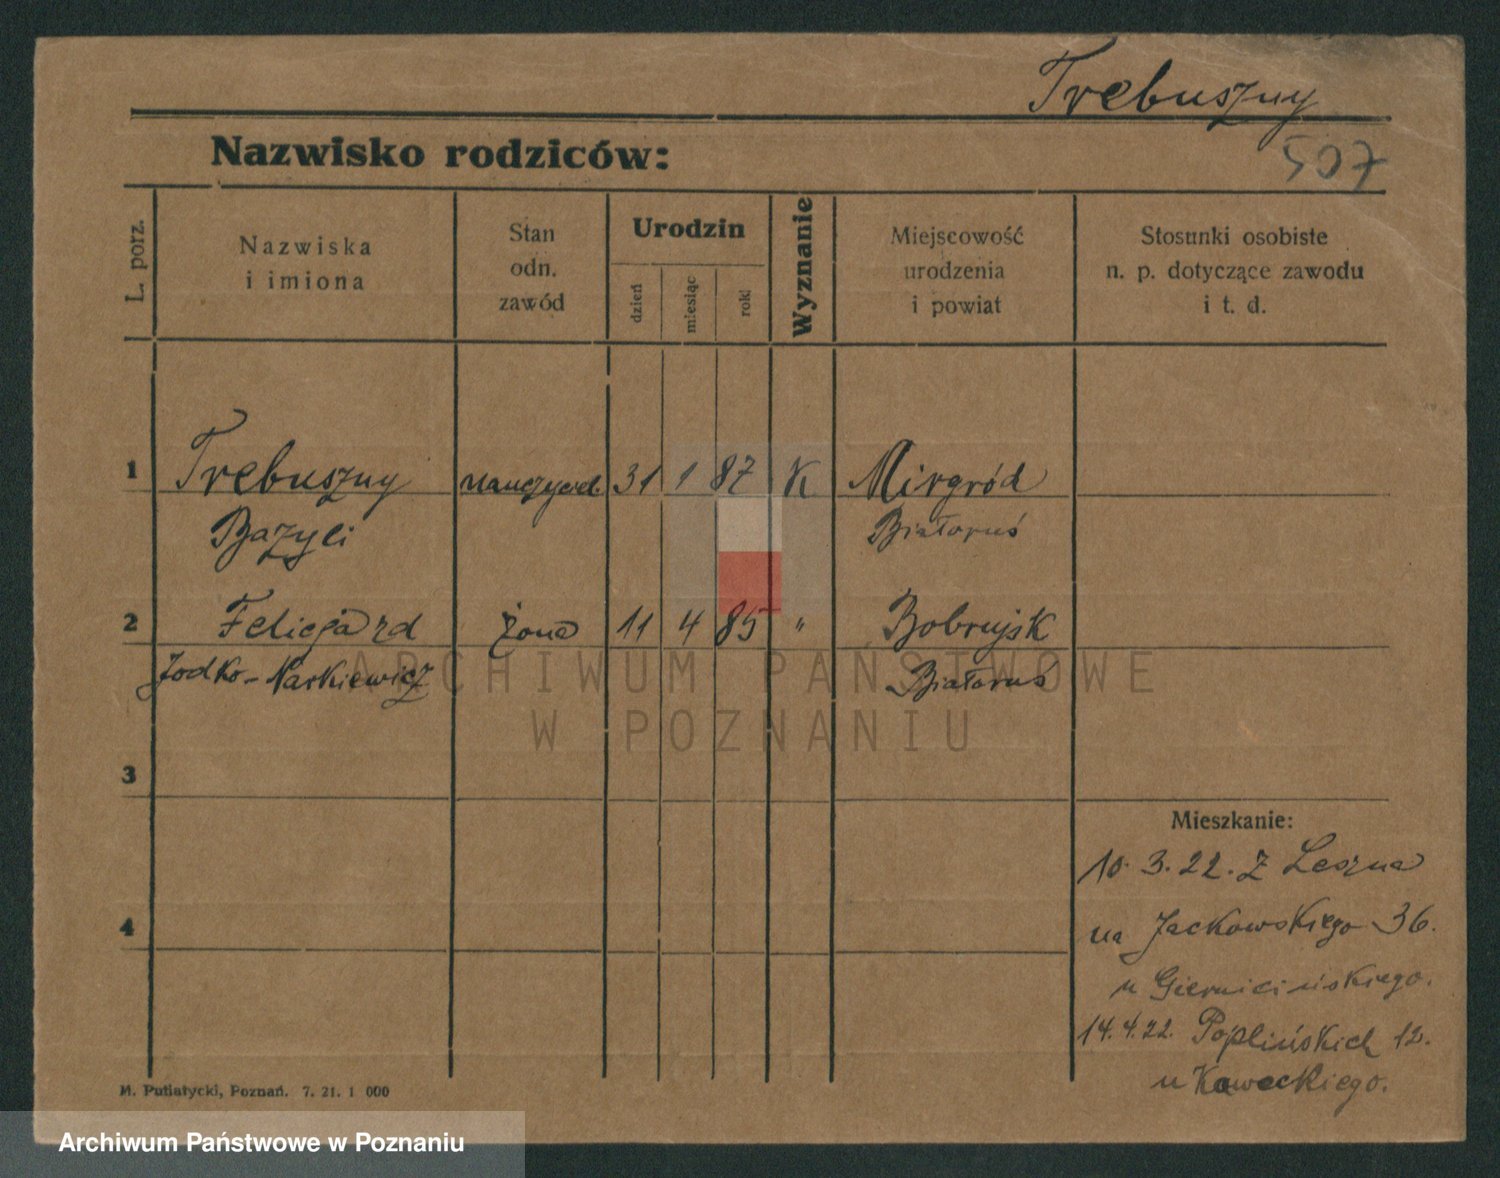 Trebuszny
507
Nazwisko rodziców:
L. porz.
Nazwiska
i imiona
Stan
odn.
zawód
Urodzin
dzień
miesiąc
rok
Wyznanie
Miejscowość
urodzenia
i powiat
Stosunki osobiste
n. p. dotyczące zawodu
i t. d.
1 Trebuszny nauczyciel. 31 1 87 K Mirgród
Bazyli Białoruś
2 Felicja rd żona 11 4 85 " Bobrujsk
Jodko-Narkiewicz Białoruś
ARCHIWUM PAŃSTWOWE
W POZNANIU
3
Mieszkanie:
10.3.22. Z Leszna
4
na Jackowskiego 36.
u
14.4.22. Poplińskich 12.
u Kaweckiego.
M. Putiatycki, Poznań. 7. 21. 1 000
Archiwum Państwowe w Poznaniu